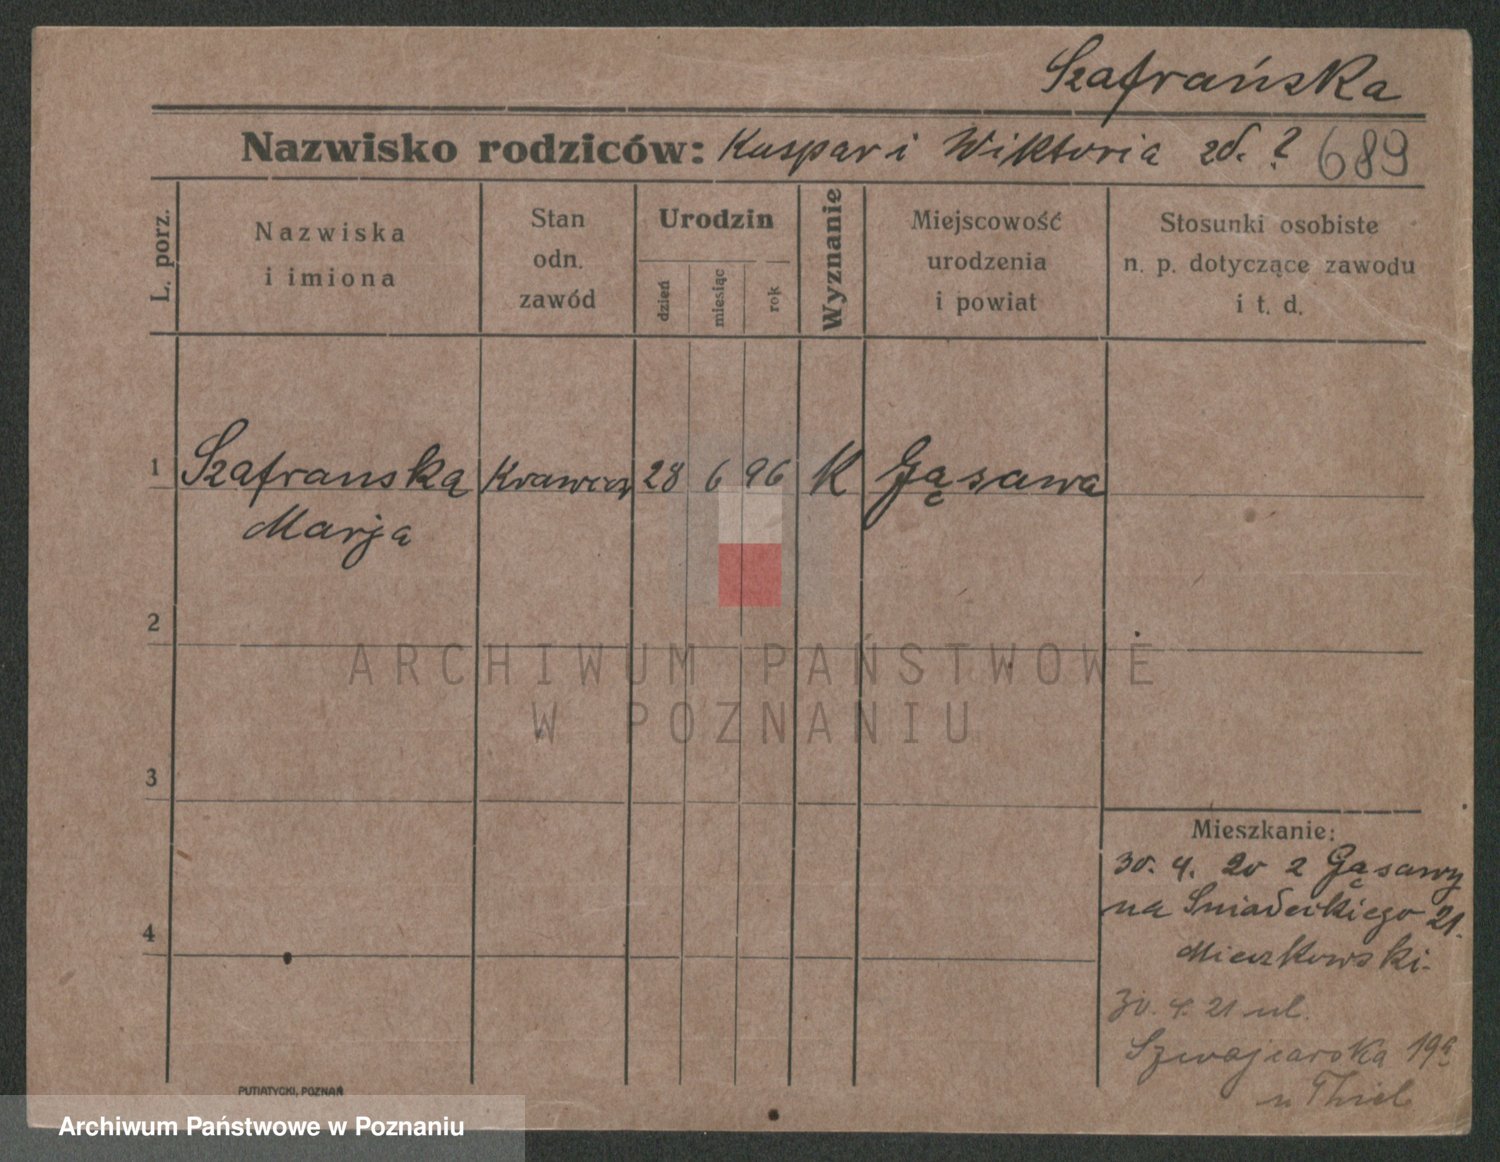 Szafrańska
Nazwisko rodziców: Kaspar i Wiktoria zd. ? 689
L. porz.
Nazwiska
i imiona
Stan
odn.
zawód
Urodzin
dzień
miesiąc
rok
Wyznanie
Miejscowość
urodzenia
i powiat
Stosunki osobiste
n. p. dotyczące zawodu
i t. d.
1 Szafranska Krawcz 28 6 96 K Gąsawa
Marja
2
ARCHIWUM PAŃSTWOWE
W POZNANIU
3
Mieszkanie:
30. 4. 20 z Gąsawy
na Sniadeckiego 21.
Mieczkowski.
4
30. 4. 21 ul.
Szwajcarska 19a
u Thiel
PUTIATYCKI, POZNAŃ
Archiwum Państwowe w Poznaniu